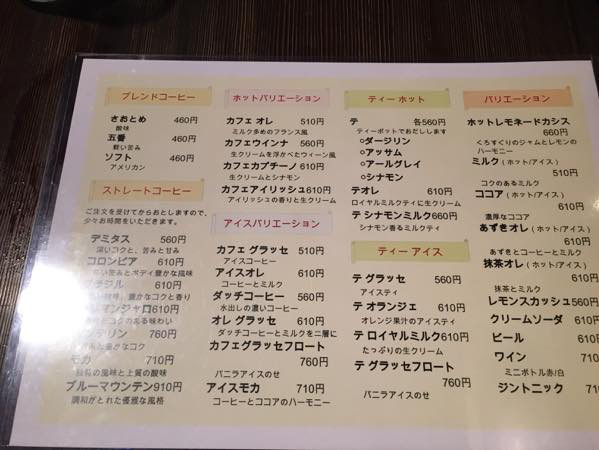 ブレンドコーヒー
さおとめ 460円
酸味
五番 460円
軽い苦み
ソフト 460円
アメリカン
ストレートコーヒー
ご注文を受けてからおとしますので、
少々お時間をいただきます。
デミタス 560円
深いコクと、苦みと甘み
コロンビア 610円
い苦みとボディ豊かな風味
ラジル 610円
豊かなコクと香り
マンジャロ 610円
コクのある味わい
デリン 760円
豊かなコク
モカ 710円
独特の風味と上質の酸味
ブルーマウンテン 910円
調和がとれた優雅な風格
ホットバリエーション
カフェ オレ 510円
ミルク多めのフランス風
カフェウインナ 560円
生クリームを浮かべたウィーン風
カフェカプチーノ 610円
生クリームとシナモン
カフェアイリッシュ 610円
アイリッシュの香りと生クリーム
アイスバリエーション
カフェ グラッセ 510円
アイスコーヒー
アイスオレ 610円
コーヒーとミルク
ダッチコーヒー 560円
水出しの濃いコーヒー
オレ グラッセ 610円
ダッチコーヒーとミルクを二層に
カフェグラッセフロート
760円
バニラアイスのせ
アイスモカ 710円
コーヒーとココアのハーモニー
ティー ホット
テ 各560円
ティーポットでおだしします
○ダージリン
○アッサム
○アールグレイ
○シナモン
テオレ 610円
ロイヤルミルクティに生クリーム
テ シナモンミルク 660円
シナモン香るミルクティ
ティー アイス
テ グラッセ 560円
アイスティ
テ オランジェ 610円
オレンジ果汁のアイスティ
テ ロイヤルミルク 610円
たっぷりの生クリーム
テ グラッセフロート
760円
バニラアイスのせ
バリエーション
ホットレモネードカシス
660円
くろすぐりのジャムとレモンの
ハーモニー
ミルク (ホット/アイス)
510円
コクのあるミルク
ココア (ホット/アイス)
610円
濃厚なココア
あずきオレ (ホット/アイス)
610円
あずきとコーヒーとミルク
抹茶オレ (ホット/アイス)
610円
抹茶とミルク
レモンスカッシュ 560円
クリームソーダ 610円
ビール 610円
ワイン 710円
ミニボトル赤/白
ジントニック 710円